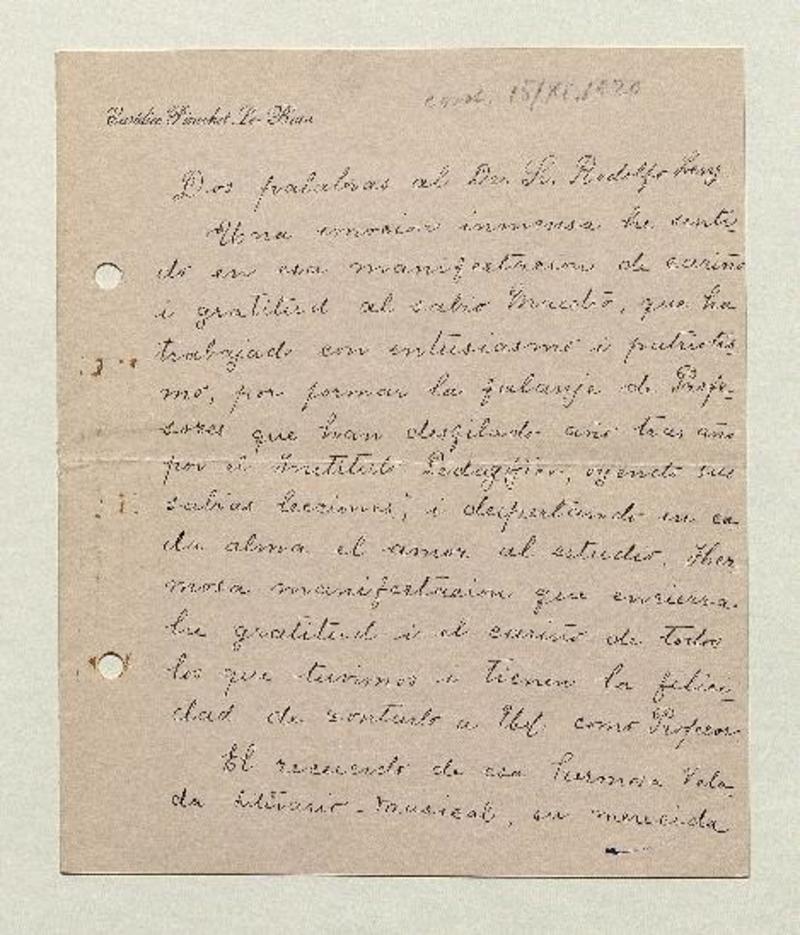 Pinochet Le-Brun
cont. 15/XI.1920
Dos palabras al Dr. S. Rodolfo Lenz
Una emocion inmensa he senti-
do en esa manifestacion de cariño
i gratitud al sabio Maestro, que ha
trabajado con entusiasmo i patriotis-
mo, por formar la falanje de Profe-
sores que han desfilado año tras año
por el Instituto Pedagójico, oyendo sus
sabias lecciones; i despertando en ca
da alma el amor al estudio. Her
mosa manifestacion que encierra
la gratitud i el cariño de todos
los que tuvimos i tienen la felici-
dad de contarlo a Ud. como Profesor
El recuerdo de esa hermosa Vela
da Literario-musical, su merecida